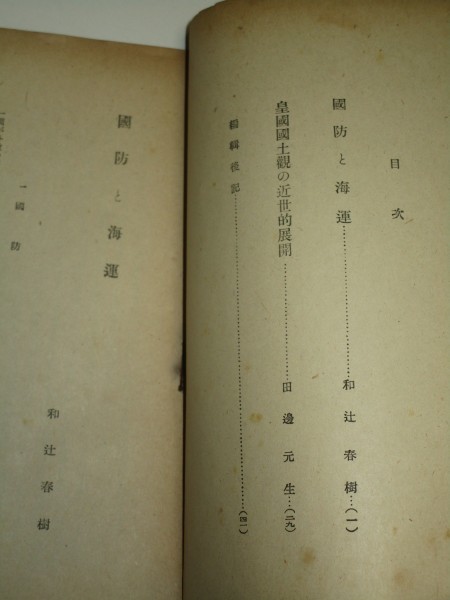 目次
國防と海運……和辻春樹…(一)
皇國國土觀の近世的展開……田邊元生…(二九)
編輯後記……(四一)
國防と海運
和辻春樹
一 國防